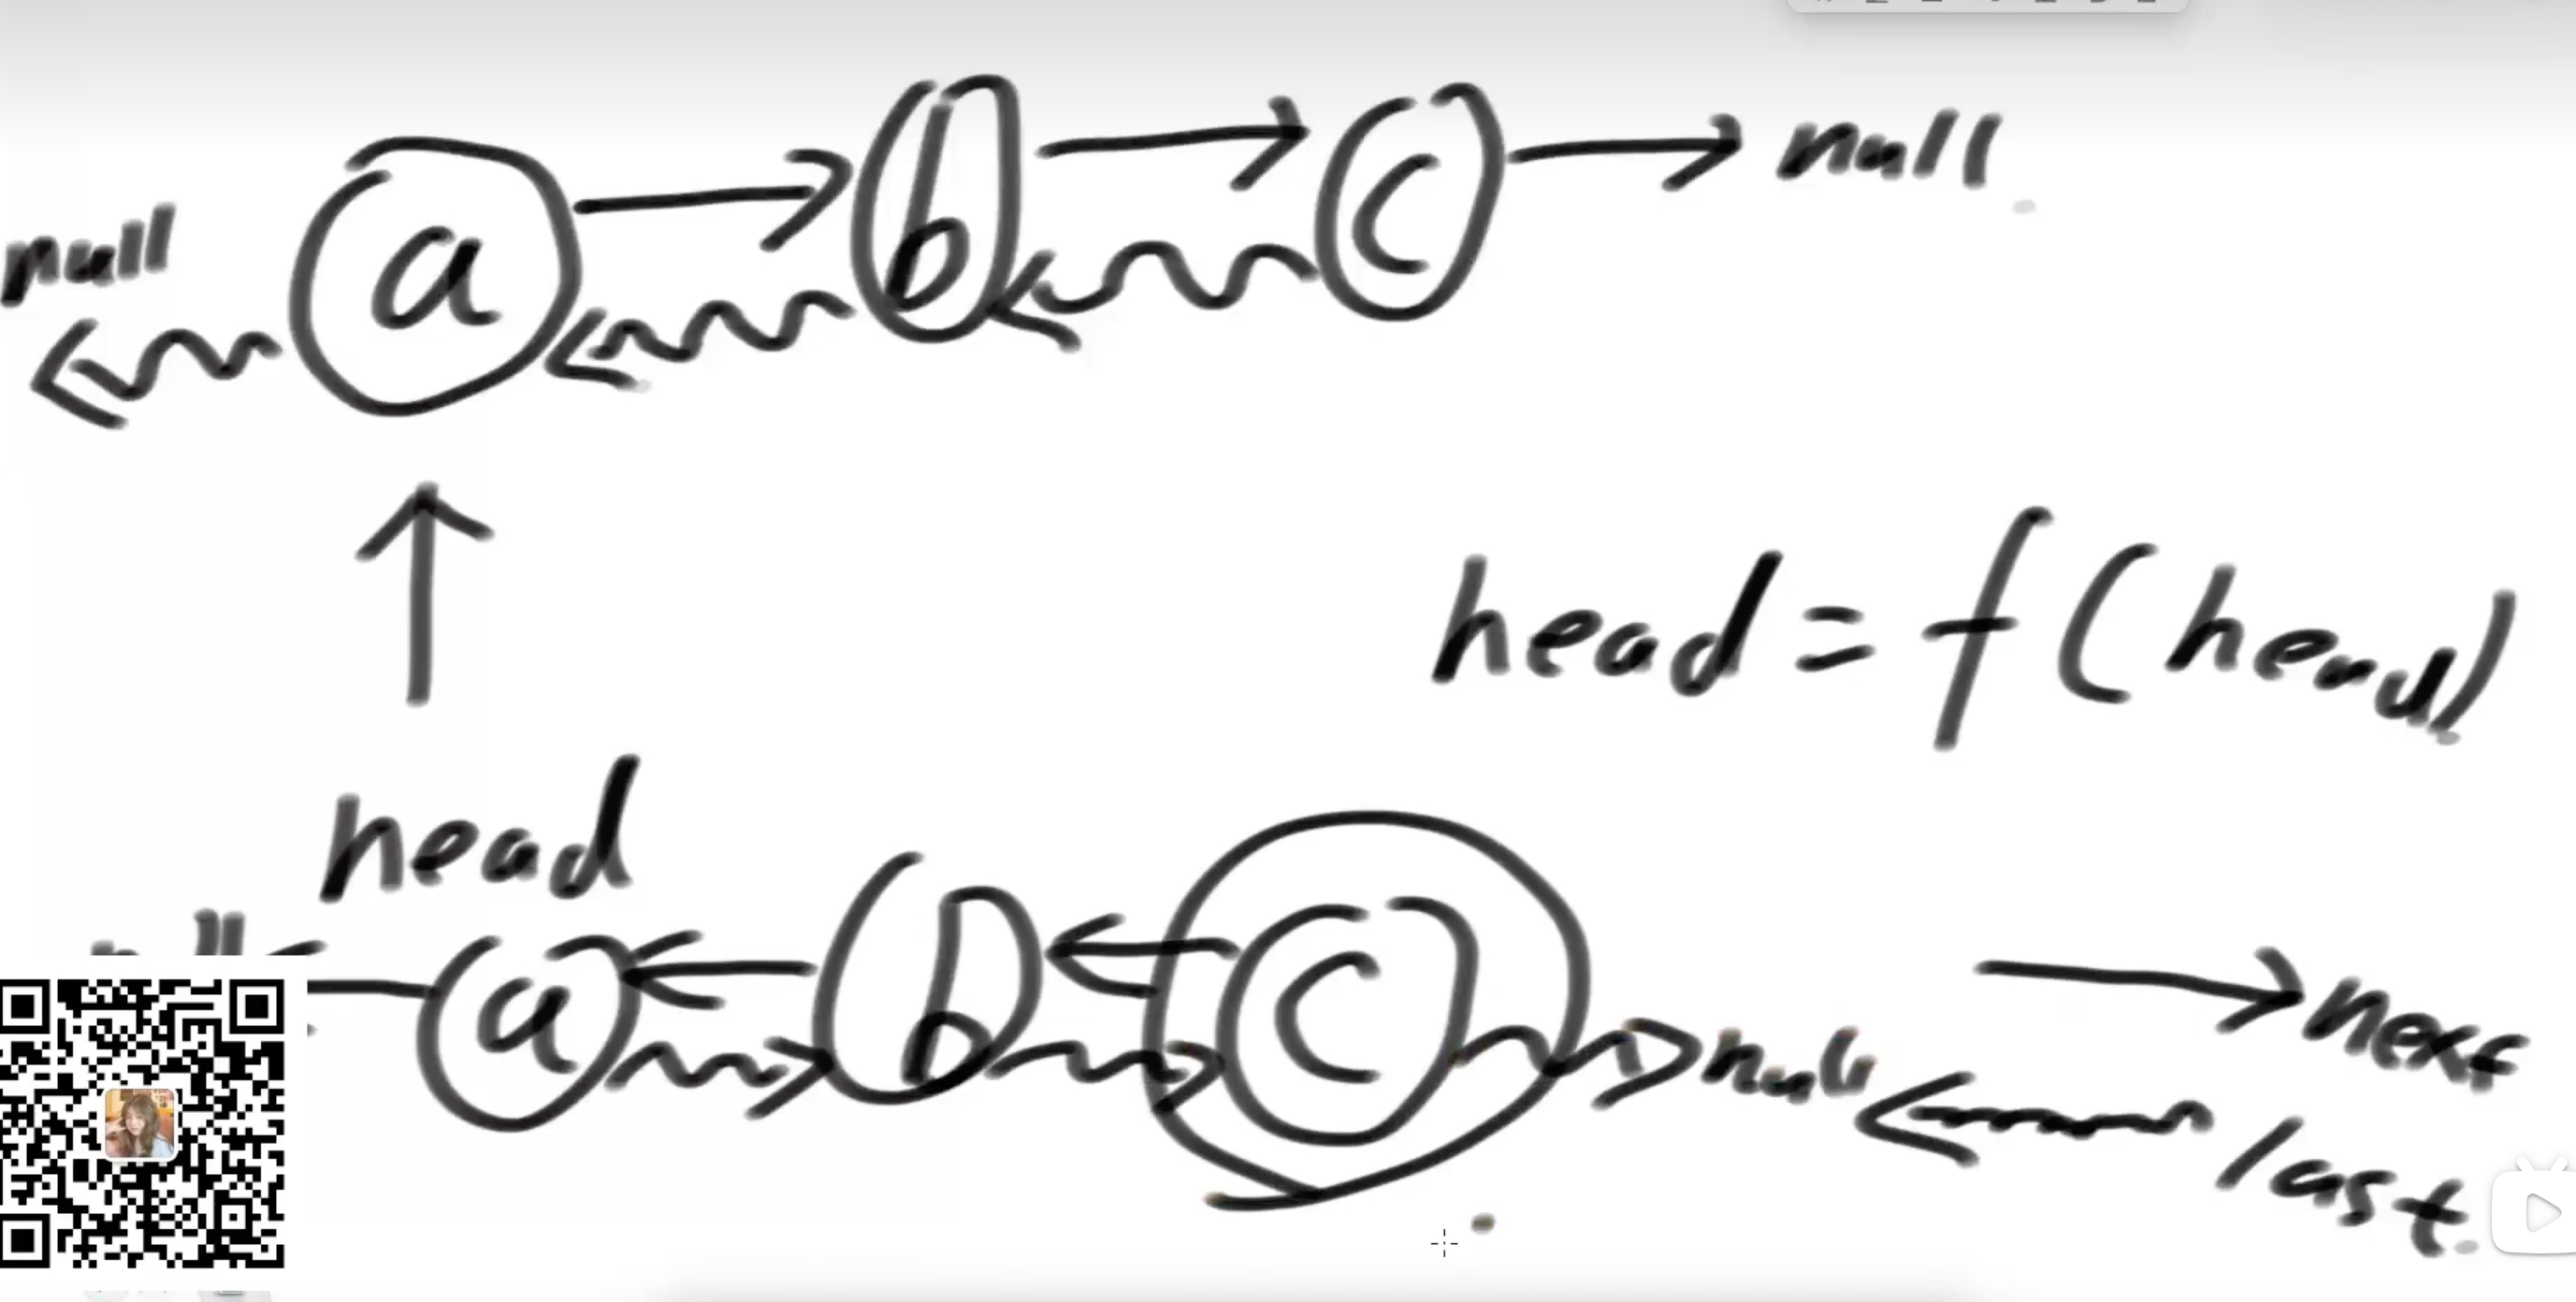 a b c null
null
head = f(head)
head
a b c null
next
last